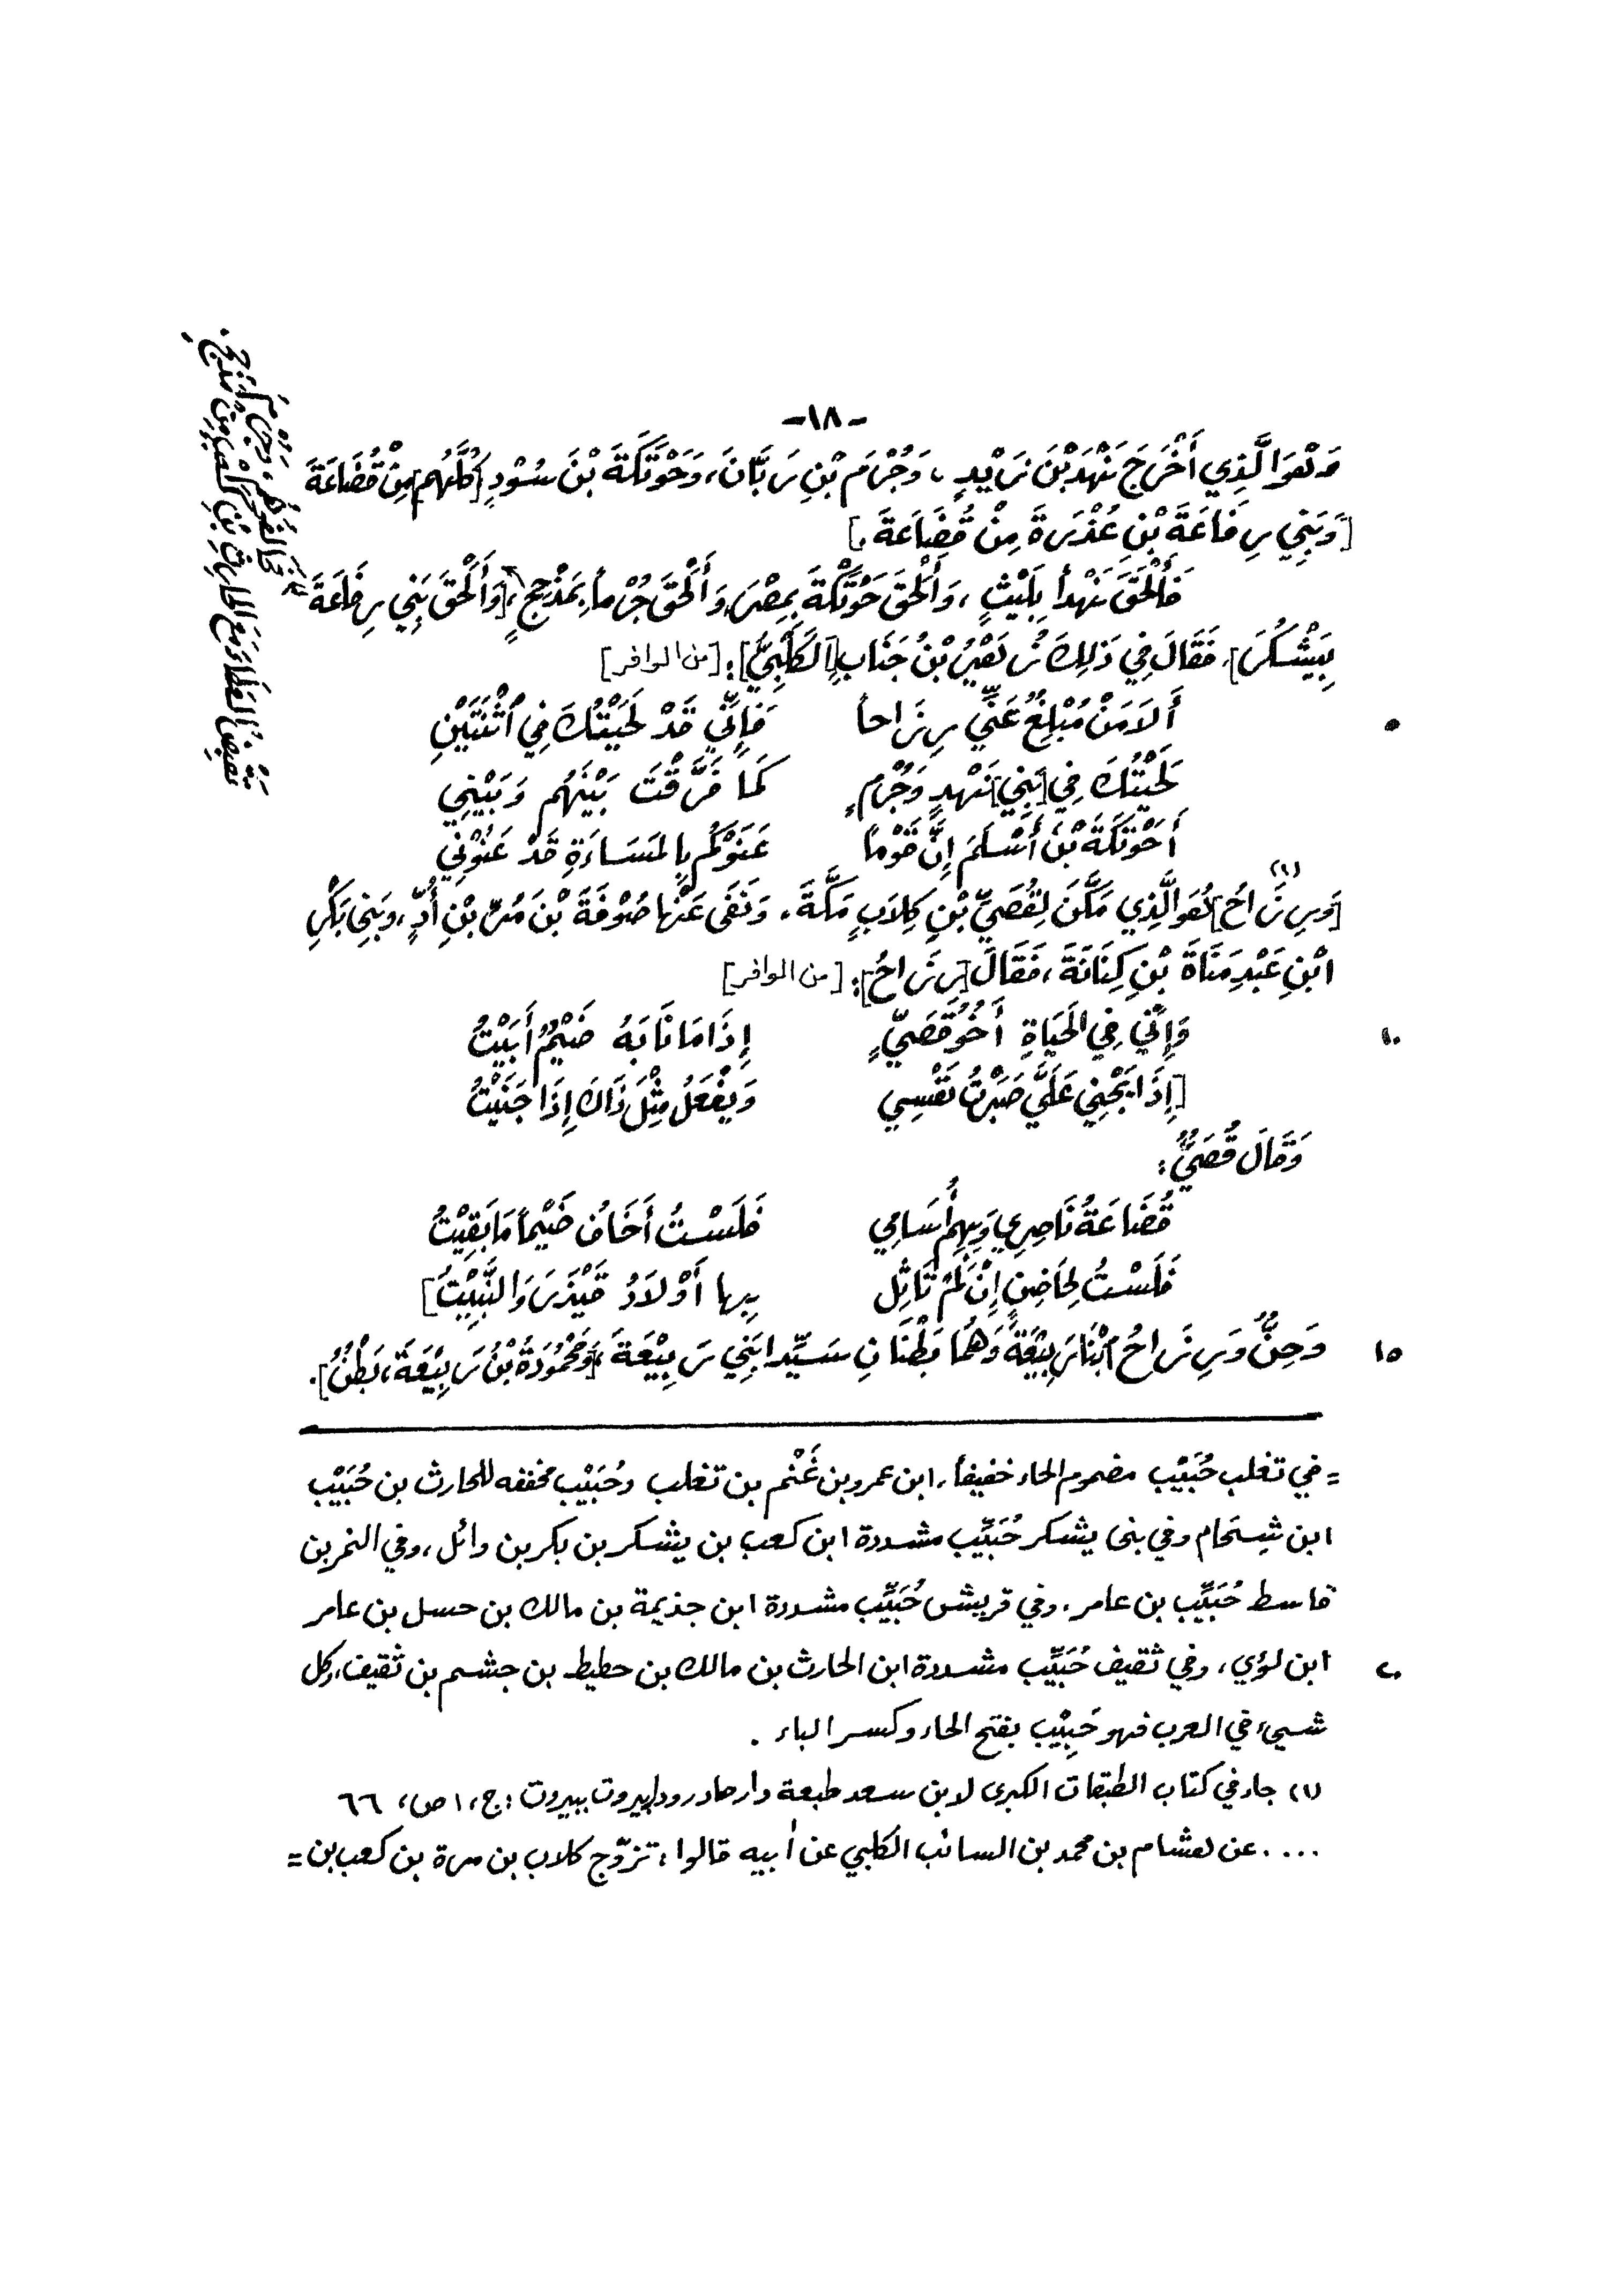 -١٨-
وَهُوَ الَّذِي أَخْرَجَ نَهْدَ بْنَ زَيْدٍ، وَجُرْمَ بْنِ رَبَّانَ، وَحَوْتَكَةَ بْنَ سُوْدٍ [كُلَّهُم] مِنْ قُضَاعَةَ
[وَبَنِي رِفَاعَةَ بْنِ عُذْرَةَ مِنْ قُضَاعَةَ.]
فَأَلْحَقَ نَهْداً بِلَيْثٍ، وَأَلْحَقَ حَوْتَكَةَ بِمِصْرَ، وَأَلْحَقَ جُرْماً بِمَذْحِجٍ، [وَأَلْحَقَ بَنِي رِفَاعَةَ
بِيَشْكُرَ]. فَقَالَ فِي ذَلِكَ زُهَيْرُ بْنُ جَنَابٍ [الكَلْبِيُّ]: [من الوافر]
أَلَا مَنْ مُبْلِغٌ عَنِّي رِزَاحاً فَإِنِّي قَدْ لَحَيْتُكَ فِي اثْنَتَيْنِ ٥
لَحَيْتُكَ فِي [بَنِي] نَهْدٍ وَجُرْمٍ كَمَا فَرَّقْتَ بَيْنَهُم وَبَيْنِي
أَحَوْتَكَةَ بْنَ أَسْلَمَ إِنَّ قَوْماً عَنَوْكُم بِالمَسَاءَةِ قَدْ عَنُوْنِي
[وَرِزَاحُ] (١) هُوَ الَّذِي مَكَّنَ لِقُصَيِّ بْنِ كِلَابٍ مَكَّةَ، وَنَفَى عَنْهَا صُوْفَةَ بْنَ مُرِّ بْنِ أُدٍّ، وَبَنِي بَكْرِ
ابْنِ عَبْدِ مَنَاةَ بْنِ كِنَانَةَ، فَقَالَ [رِزَاحُ]: [من الوافر]
وَإِنِّي فِي الحَيَاةِ أَخُو قُصَيٍّ إِذَا مَا نَابَهُ ضَيْمٌ أَبَيْتُ ١٠
[إِذَا يَجْنِي عَلَيَّ صَبَرْتُ نَفْسِي وَيَفْعَلُ مِثْلَ ذَاكَ إِذَا جَنَيْتُ
وَقَالَ قُصَيٌّ:
قُضَاعَةُ نَاصِرِي وَبِهِم أُسَامِي فَلَسْتُ أَخَافُ ضَيْماً مَا بَقِيْتُ
فَلَسْتُ لِحَاضِنٍ إِنْ لَمْ تَأَثَّل بِهَا أَوْلَادُ قَيْذَرَ وَالنَّبِيْتُ]
وَحِنٌّ وَرِزَاحُ ابْنَا رَبِيْعَةَ وَهُمَا بَطْنَانِ سَيِّدَا بَنِي رَبِيْعَةَ، [وَمَحْمُودَةُ بْنُ رَبِيْعَةَ، بَطْنٌ]. ١٥
= في تغلب حُبَيْب مضموم الحاء خفيفاً، ابن عمرو بن غَنْم بن تغلب وحُبَيْب مخففه للحارث بن حُبَيْب
ابن شِحَام وفي بني يشكر حُبَيِّب مشددة ابن كعب بن يشكر بن بكر بن وائل، وفي النمر بن
قاسط حُبَيِّب بن عامر، وفي قريش حُبَيِّب مشددة ابن جذيمة بن مالك بن حسل بن عامر
ابن لؤي، وفي ثقيف حُبَيِّب مشددة ابن الحارث بن مالك بن حطيط بن جشم بن ثقيف، وكل ٢٠
شيء في العرب فهو حَبِيْب بفتح الحاء وكسر الباء .
(١) جاء في كتاب الطبقات الكبرى لابن سعد طبعة دار صادر ودار بيروت ببيروت: ج، ١ ص، ٦٦
.... عن هشام بن محمد بن السائب الكلبي عن أبيه قالوا، تزوّج كلاب بن مرة بن كعب بن =